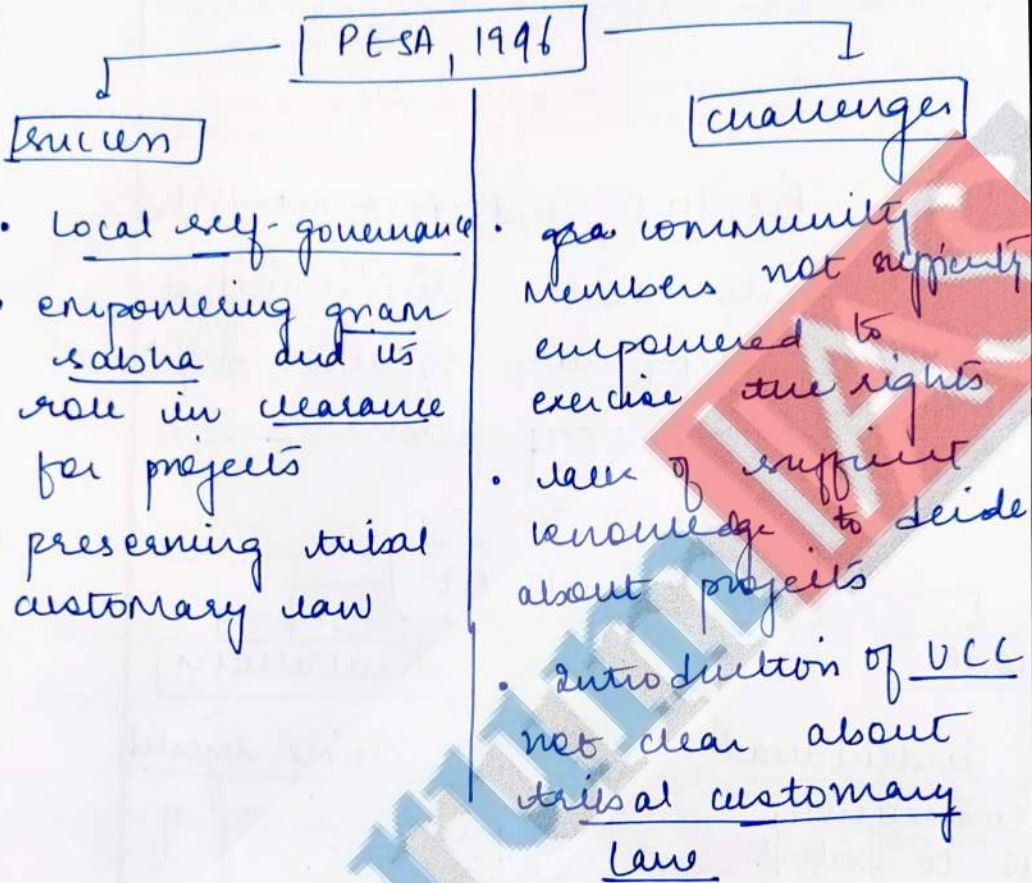 PESA, 1996
success
• Local self-governance
• empowering gram
sabha and its
role in clearance
for projects
• preserving tribal
customary law
challenges
• community
members not sufficiently
empowered to
exercise the rights
• lack of sufficient
knowledge to decide
about projects
• Introduction of UCC
not clear about
tribal customary
law
rum|IAS